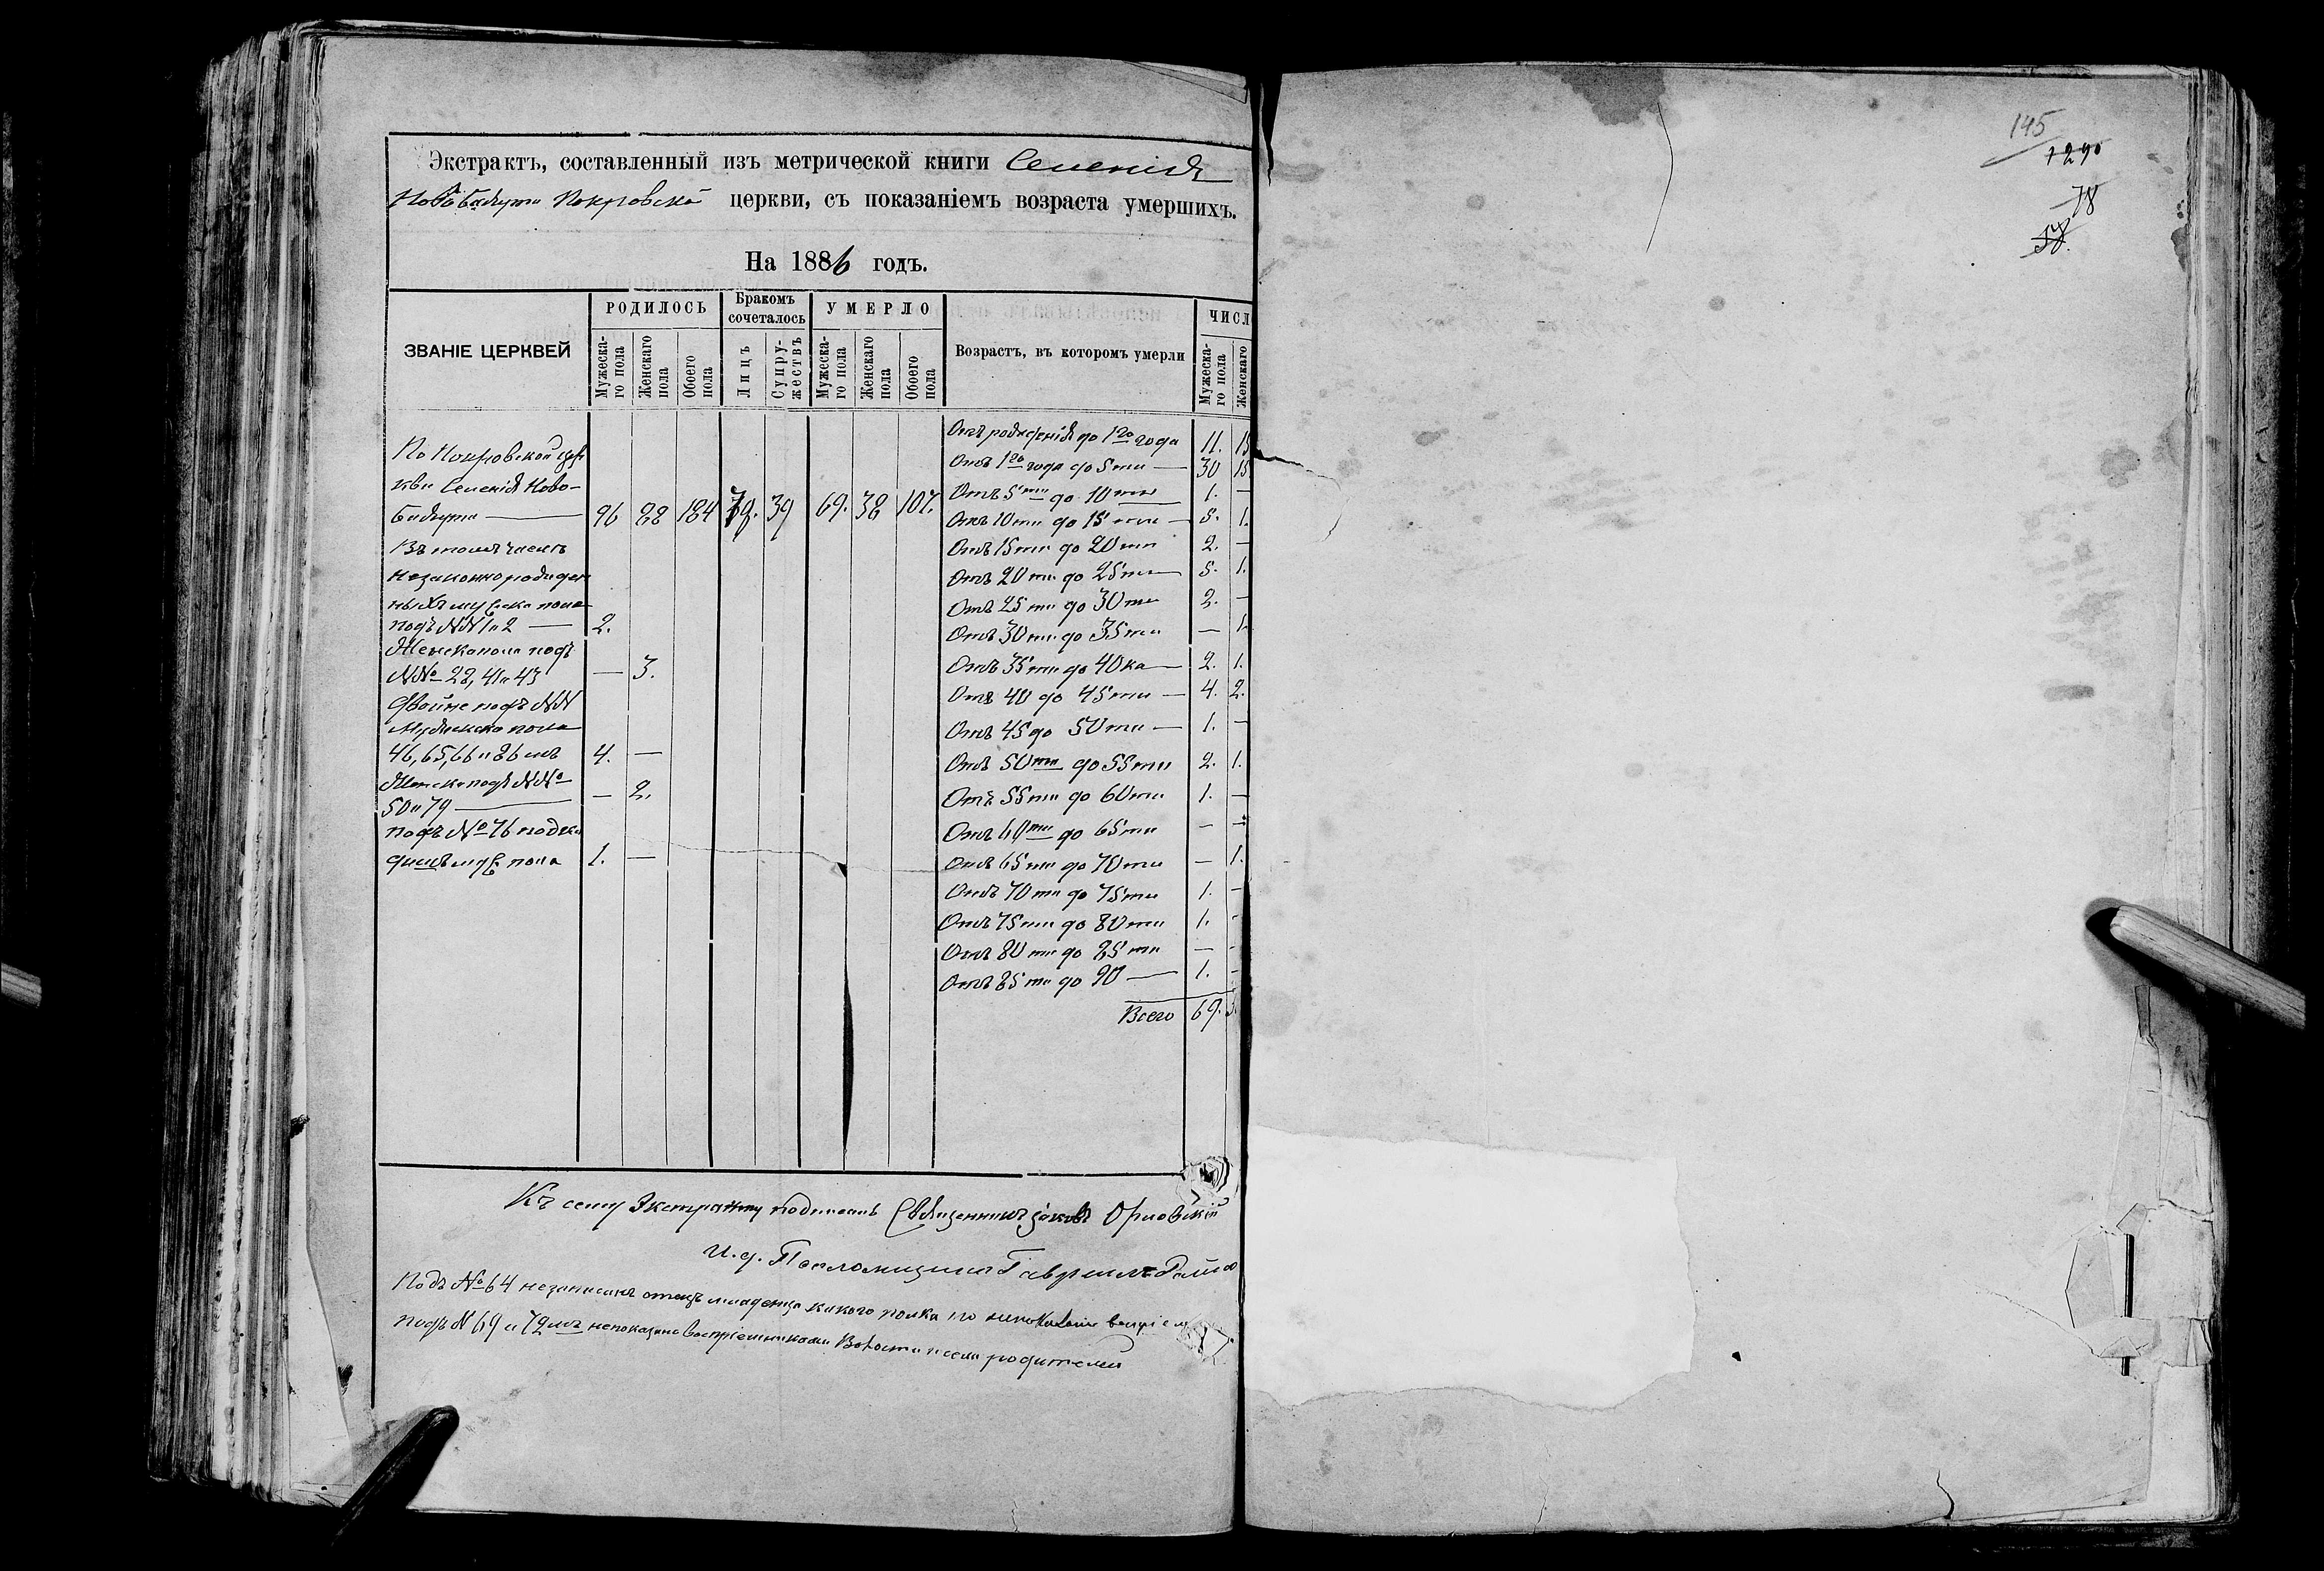 Экстрактъ, составленный изъ метрической книги Селенія
Новобаязута Покровско церкви, съ показаніемъ возраста умершихъ.
На 1886 годъ.
ЗВАНІЕ ЦЕРКВЕЙ
РОДИЛОСЬ
Мужеска-
го пола
Женскаго
пола
Обоего
пола
Бракомъ
сочеталось
Лицъ
Супру-
жествъ
УМЕРЛО
Мужеска-
го пола
Женскаго
пола
Обоего
пола
Возрастъ, въ которомъ умерли
ЧИСЛ
Мужеска-
го пола
Женскаго
По Покровской цер
кви Селенія Ново-
96 88 184 78. 39 69. 38 107.
Въ томъ числѣ
незаконнорожден
ныхъ муж пола
подъ №№ 1 и 2 — 2.
Женска пола подъ
№№ 28, 41 и 43 — 3.
Двойне подъ №№
Мужеска пола
46, 65, 66 и 86 мъ 4. —
Женска подъ №№
50 и 79 — — 2.
подъ № 76 подки
дышъ муж пола 1. —
Отъ рожденія до 1го года 11. 15
Отъ 1го года до 5ти — 30 15
Отъ 5ти до 10ти 1. —
Отъ 10ти до 15ти — 5. 1.
Отъ 15ти до 20ти 2. —
Отъ 20ти до 25ти — 5. 1.
Отъ 25ти до 30ти 2. —
Отъ 30ти до 35ти — 1.
Отъ 35ти до 40ка — 2. 1.
Отъ 40 до 45ти — 4. 2.
Отъ 45 до 50ти — 1. —
Отъ 50ти до 55ти 2. 1.
Отъ 55ти до 60ти 1. —
Отъ 60ти до 65ти — —
Отъ 65ти до 70ти — 1.
Отъ 70ти до 75ти 1. —
Отъ 75ти до 80ти 1. -
Отъ 80ти до 85ти — -
Отъ 85ти до 90 — 1. -
Всего 69. 3
Къ сему Экстракту подписалъ Священникъ Іаковъ Орловскій
И. д. Псаломщика Гавріилъ
Подъ № 64 незаписанъ отецъ младенца какого полка
подъ № 69 и 72мъ непоказано воспріемниками Волости и села родителей
145
1290
78
58.